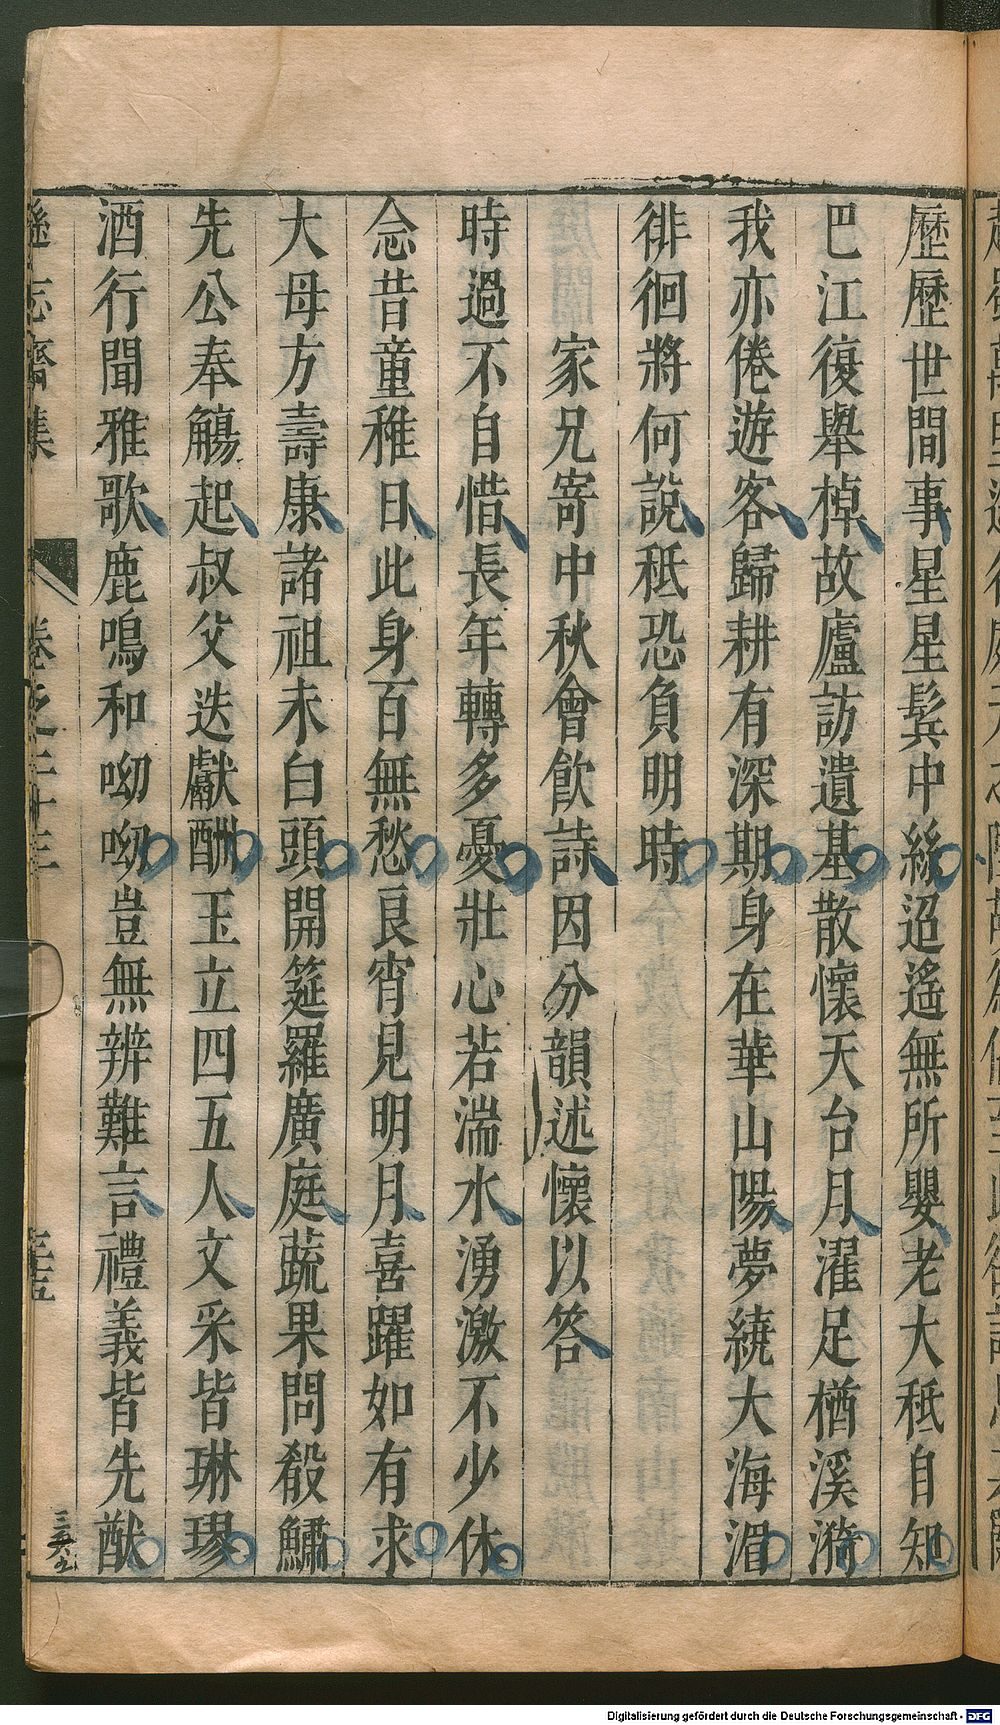 歷歷世間事星星鬂中絲迢遙無所嬰老大秪自知
巴江復舉棹故廬訪遺基散懷天台月濯足楢溪漪
我亦倦遊客歸耕有深期身在華山陽夢繞大海湄
徘徊將何說秪恐負明時
家兄寄中秋會飲詩因分韻述懷以答
時過不自惜長年轉多憂壯心若湍水湧激不少休
念昔童稚日此身百無愁良宵見明月喜躍如有求
大母方壽康諸祖未白頭開筵羅廣庭蔬果問殽鱐
先公奉觴起叔父迭獻酬玉立四五人文采皆琳璆
酒行聞雅歌鹿鳴和呦呦豈無辨難言禮義皆先猷
遜志齋集
卷之二十三
三五
三六九
Digitalisierung gefördert durch die Deutsche Forschungsgemeinschaft - DFG